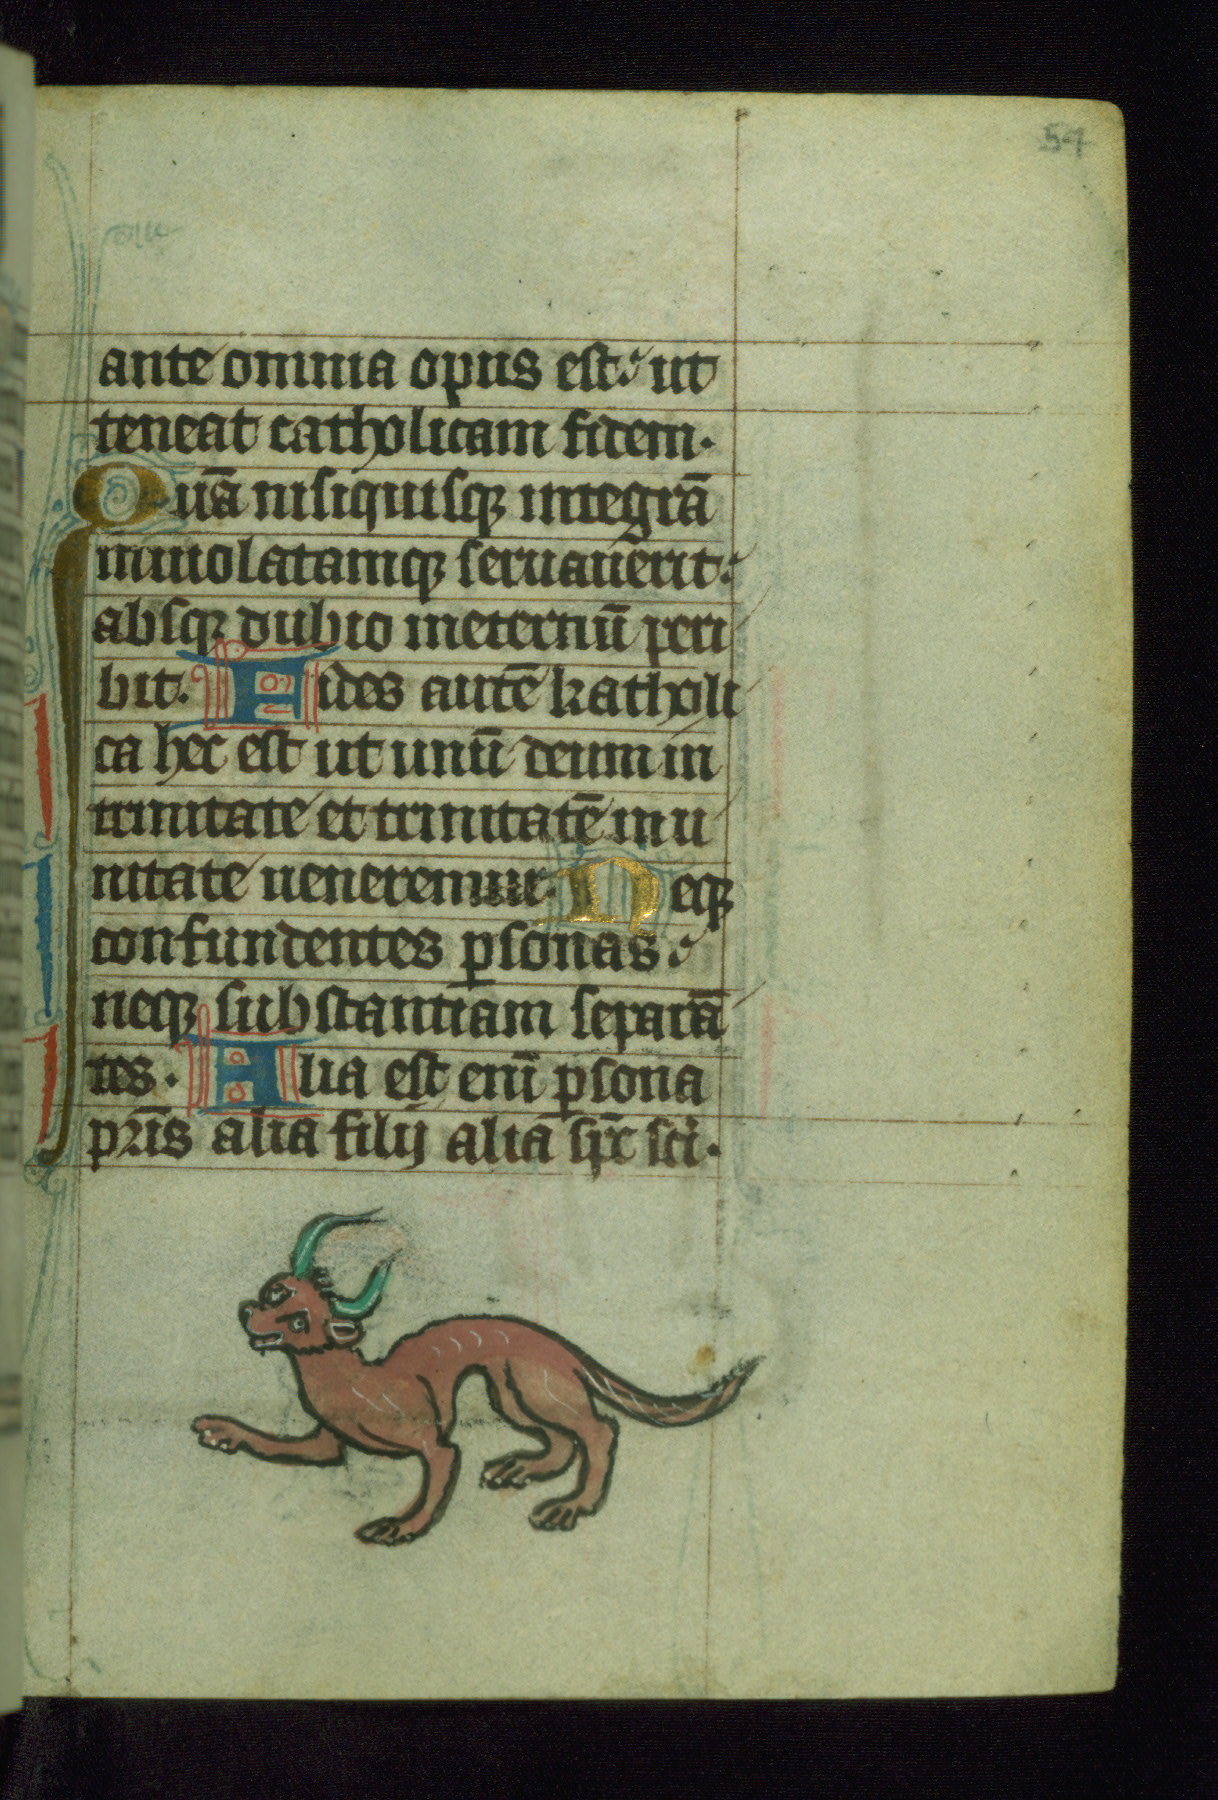 54
ante omnia opus est ut
teneat catholicam fidem.
Quā nisi quisq integrā
inuiolatamq seruauerit
absq dubio ineternū peri
bit. Fides autē katholi
ca hec est ut unū deum in
trinitate et trinitatē in u
nitate ueneremur. Neq
confundentes ꝑsonas
neq substantiam separā
tes. Alia est enī ꝑsona
pr̄is alia filij alia sp̄c sc̄i.